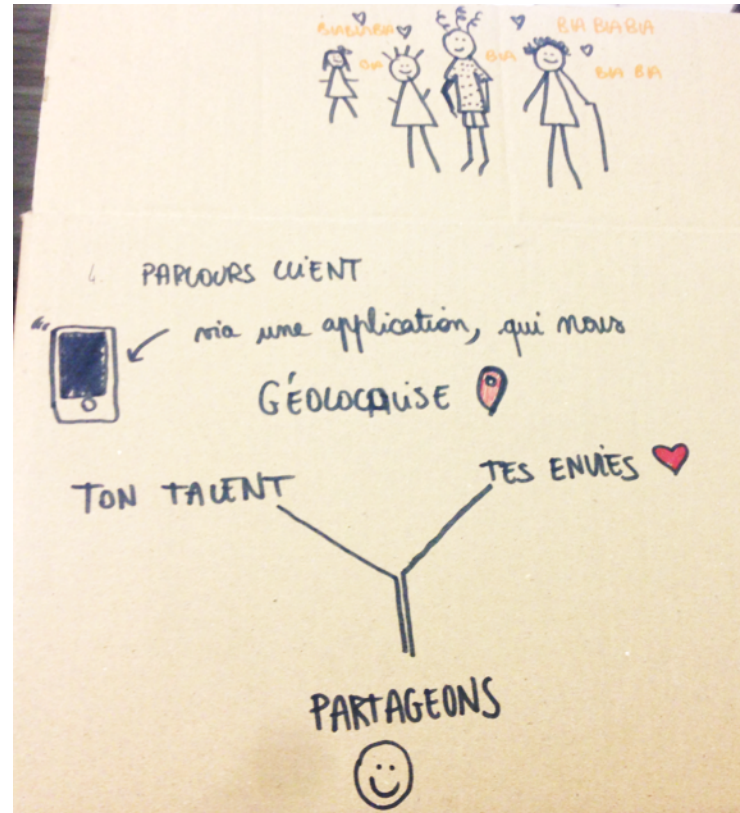 BLABLABLA
BLA
BLA
BLA BLA BLA
BLA BLA
4. PARCOURS CLIENT
via une application, qui nous
GÉOLOCALISE
TON TALENT
TES ENVIES
PARTAGEONS